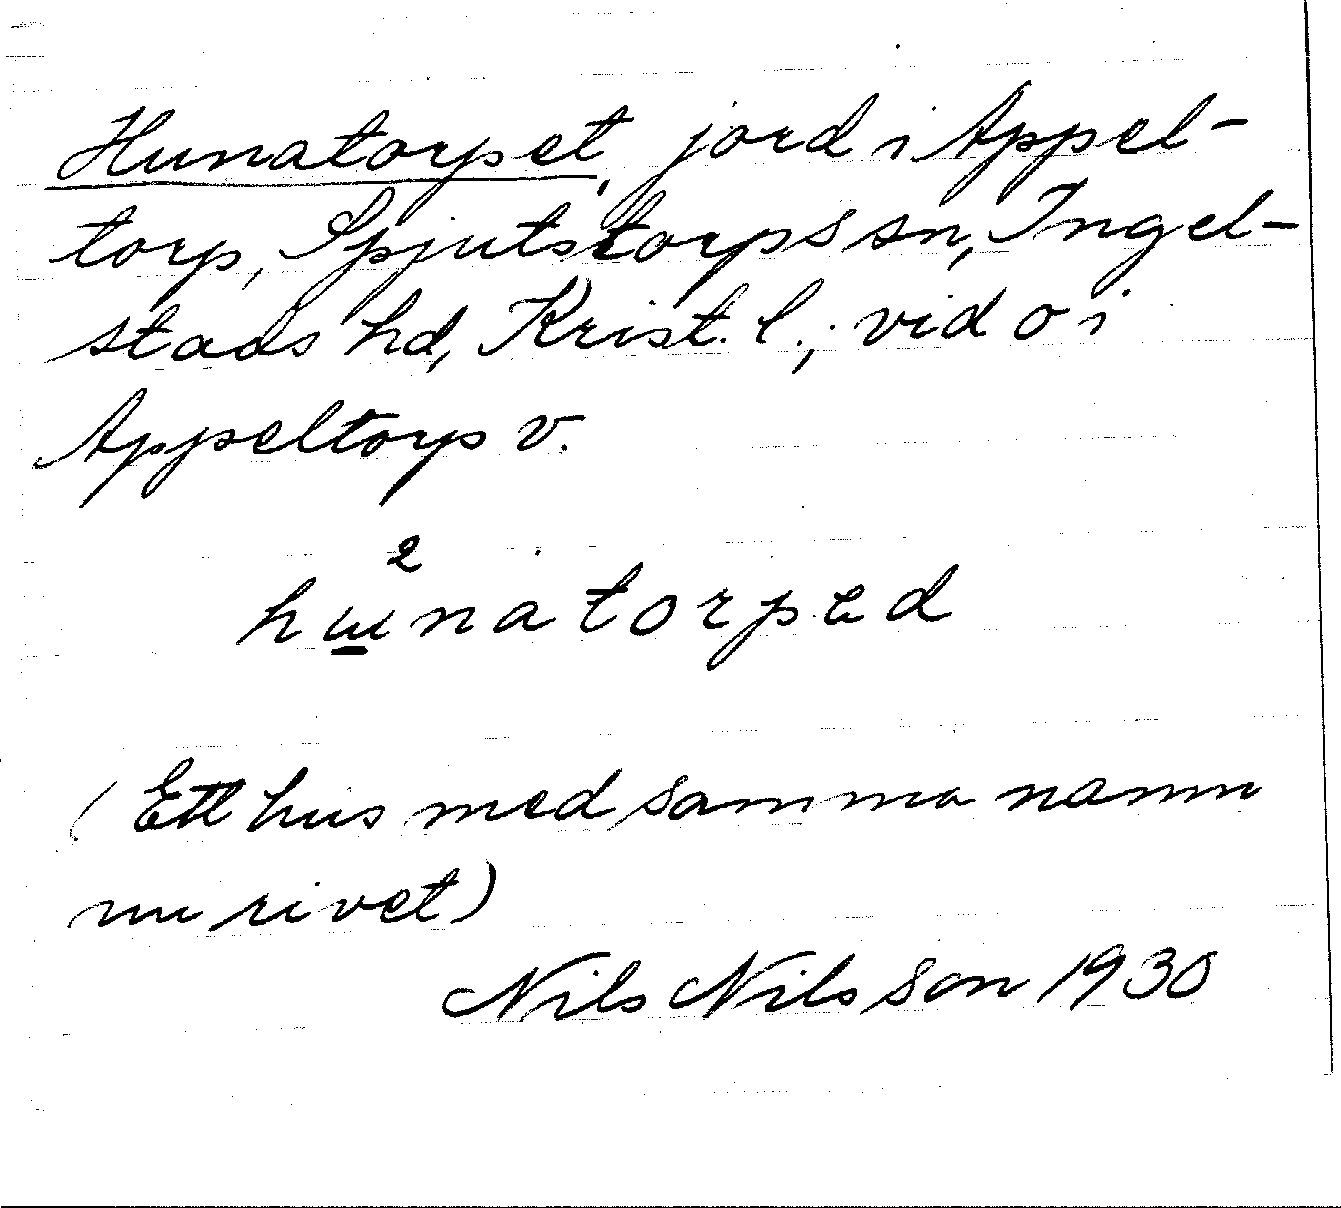 Hunatorpet, jord i Appel-
torp, Spjutstorps sn, Ingel-
stads hd, Krist. l.; vid o i
Appeltorps v.
2
hɯnatorpəd
(Ett hus med samma namn
nu rivet)
Nils Nilsson 1930